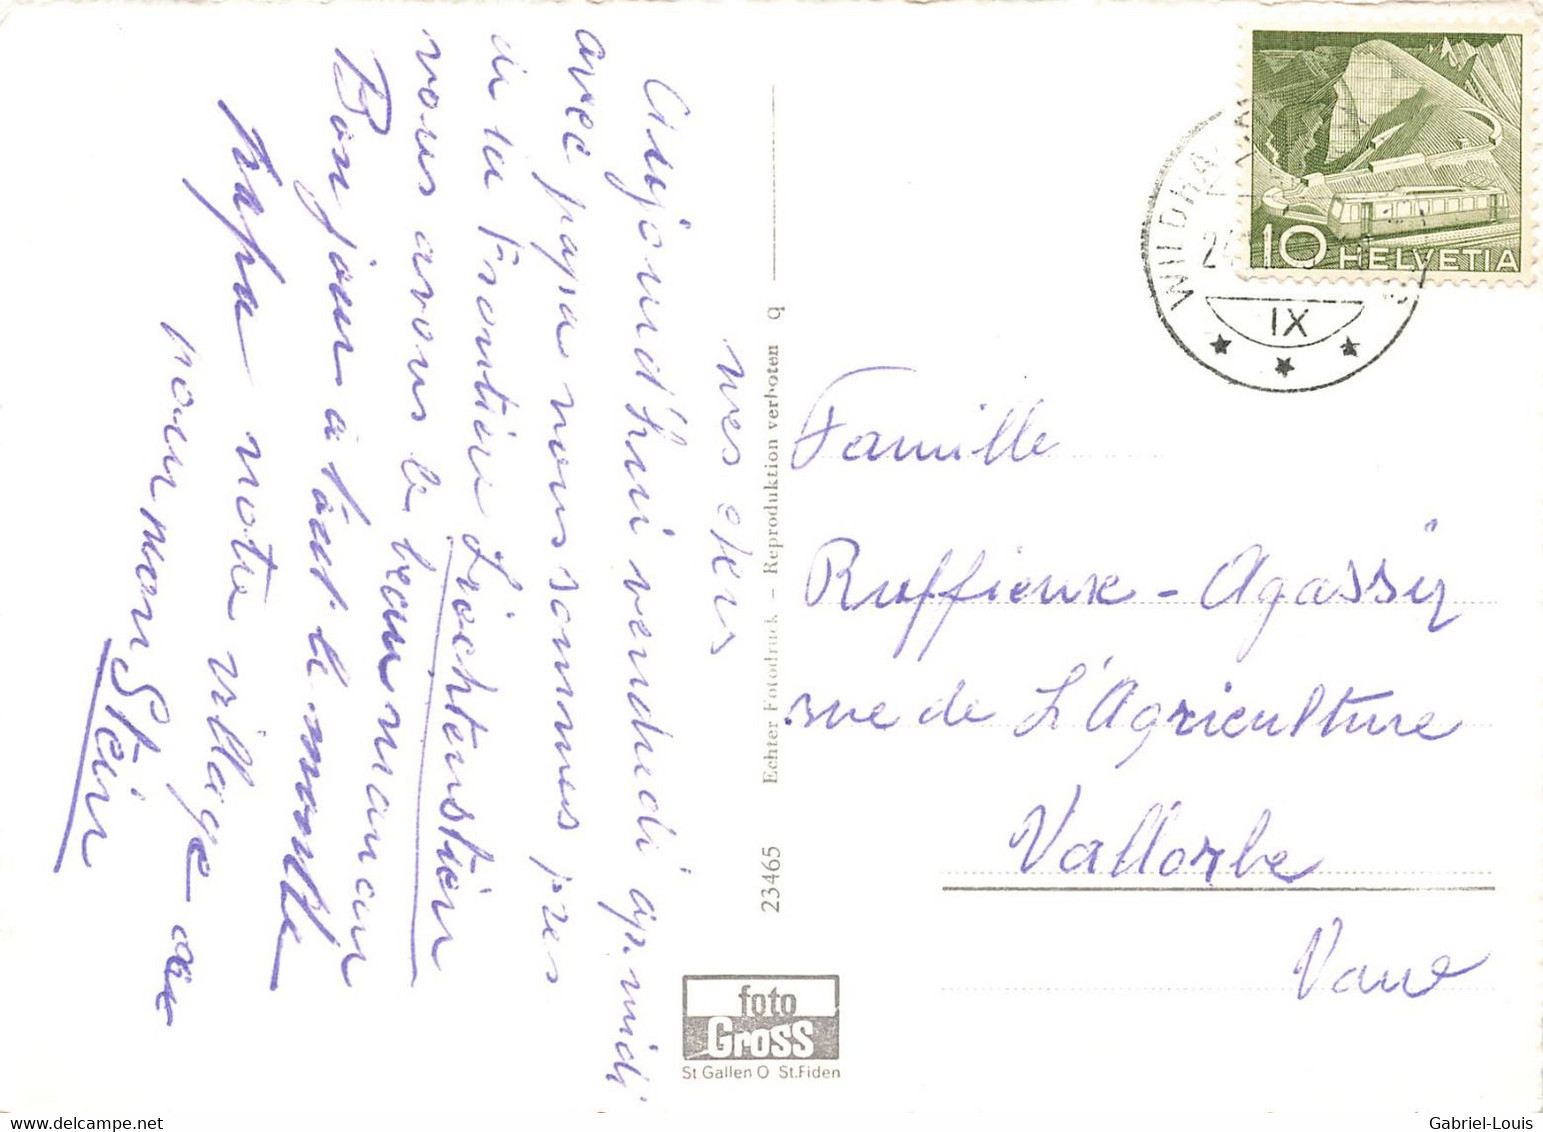 mes chers
Aujourd'hui vendredi ap. midi
avec papa nous sommes pres
de la Frontière Liechtenstein
nous avons le beau
Bonjour à tout le monde
papa notre village
pour maman Stein
Echter Fotodruck - Reproduktion verboten q
23465
foto
Gross
St.Gallen O St.Fiden
10 HELVETIA
WILDHA
24
IX
Famille
Ruffieux - Agassiz
rue de L'Agriculture
Vallorbe
Vaud
Gabriel-Louis